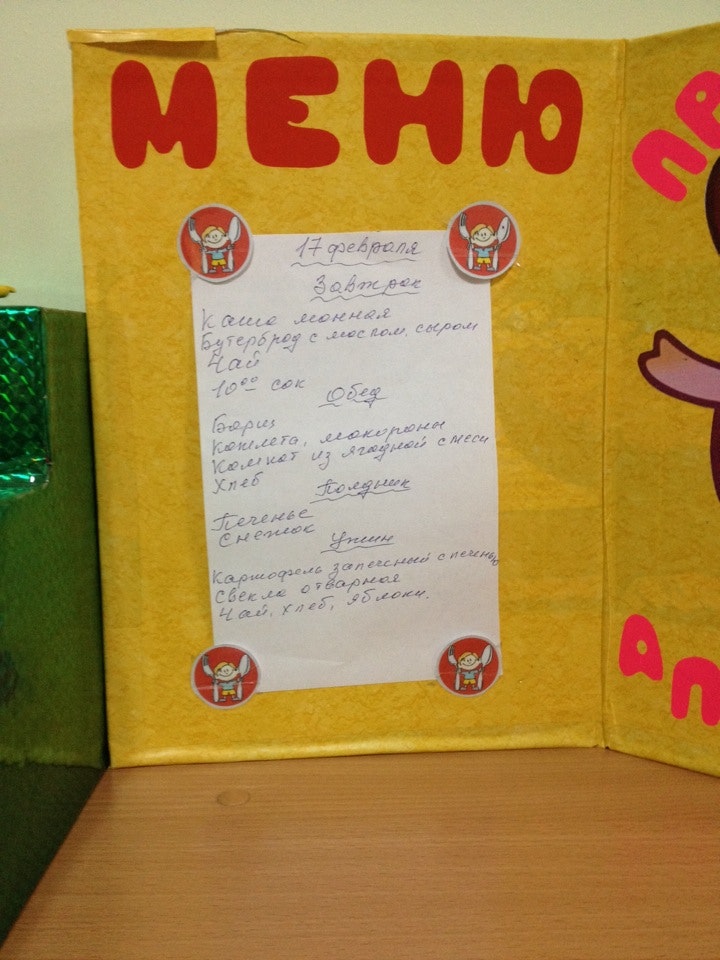 МЕНЮ
17 февраля
Завтрак
Каша манная
Бутерброд с маслом, сыром
Чай
10⁰⁰ сок
Обед
Борщ
Котлета, макароны
Компот из ягодной смеси
Хлеб
Полдник
Печенье
Снежок
Ужин
Картофель запеченый с печенью
Свекла отварная
Чай, хлеб, яблоки.
ПР
АП